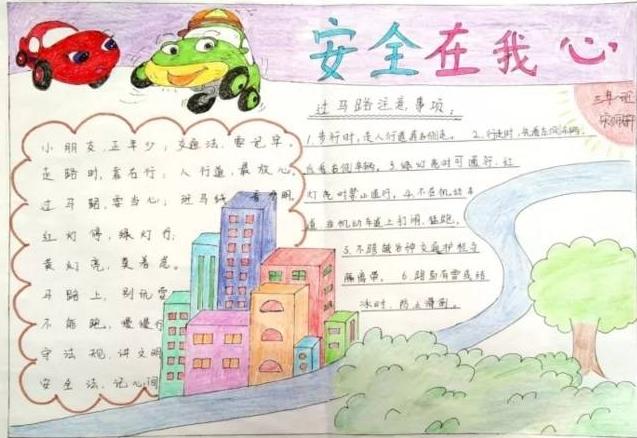 安全在我心
三年一班
小朋友,正年少,交通法,要记牢。
走路时,靠右行,人行道,最放心。
过马路,要当心,斑马线,看分明。
红灯停,绿灯行,
黄灯亮,莫着急。
马路上,别玩耍
不能跑,慢慢行
守法规,讲文明
安全法,记心间
过马路注意事项:
1.步行时,走人行道靠右侧走。 2.行走时,先看左侧车辆,
后看右侧车辆。3.绿灯亮时可通行,红
灯亮时禁止通行。4.不在机动车
道 非机动车道上打闹、猛跑。
5.不踏越各种交通护栏与
隔离带。 6.路面有雪或结
冰时,防止滑倒。